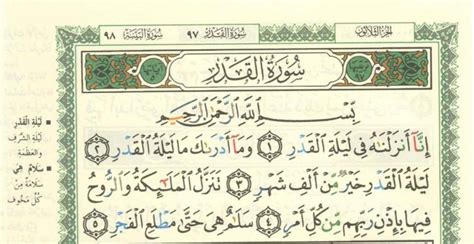 الجزء الثلاثون
سورة القدر ٩٧
سورة البينة ٩٨
سُورَةُ الْقَدْرِ
بِسْمِ اللَّهِ الرَّحْمَٰنِ الرَّحِيمِ
إِنَّآ أَنزَلْنَٰهُ فِى لَيْلَةِ ٱلْقَدْرِ ١ وَمَآ أَدْرَىٰكَ مَا لَيْلَةُ ٱلْقَدْرِ ٢
لَيْلَةُ ٱلْقَدْرِ خَيْرٌ مِّنْ أَلْفِ شَهْرٍ ٣ تَنَزَّلُ ٱلْمَلَٰٓئِكَةُ وَٱلرُّوحُ
فِيهَا بِإِذْنِ رَبِّهِم مِّن كُلِّ أَمْرٍ ٤ سَلَٰمٌ هِىَ حَتَّىٰ مَطْلَعِ ٱلْفَجْرِ ٥
لَيْلَةِ القَدْرِ
لَيْلَةِ الشَّرَفِ
والعَظَمَةِ
سَلَامٌ هِيَ
سَلَامَةٌ مِنْ
كُلِّ مَخُوفٍ